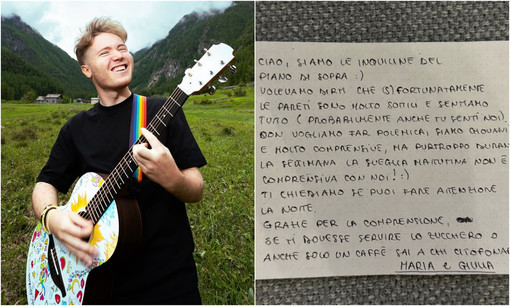 CIAO, SIAMO LE INQUILINE DEL
PIANO DI SOPRA :)
VOLEVAMO DIRTI CHE (S)FORTUNATAMENTE
LE PARETI SONO MOLTO SOTTILI E SENTIAMO
TUTTO (PROBABILMENTE ANCHE TU SENTI NOI).
NON VOGLIAMO FAR POLEMICA, SIAMO GIOVANI
E MOLTO COMPRENSIVE, MA PURTROPPO DURAN
LA SETTIMANA LA SVEGLIA MATTUTINA NON È
COMPRENSIVA CON NOI! :)
TI CHIEDIAMO SE PUOI FARE ATTENZIONE
LA NOTTE.
GRAZIE PER LA COMPRENSIONE,
SE TI DOVESSE SERVIRE LO ZUCCHERO O
ANCHE SOLO UN CAFFÈ SAI A CHI CITOFONAR
MARIA E GIULIA